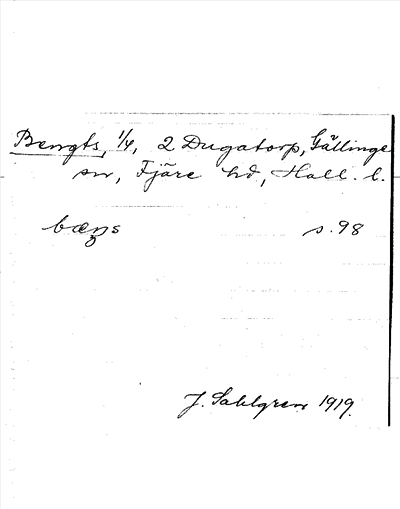 Bengts, 1/4, 2 Dugatorp, Gällinge
sn, Fjäre hd, Hall. l.
bæŋs s. 98
J. Sahlgren 1919.